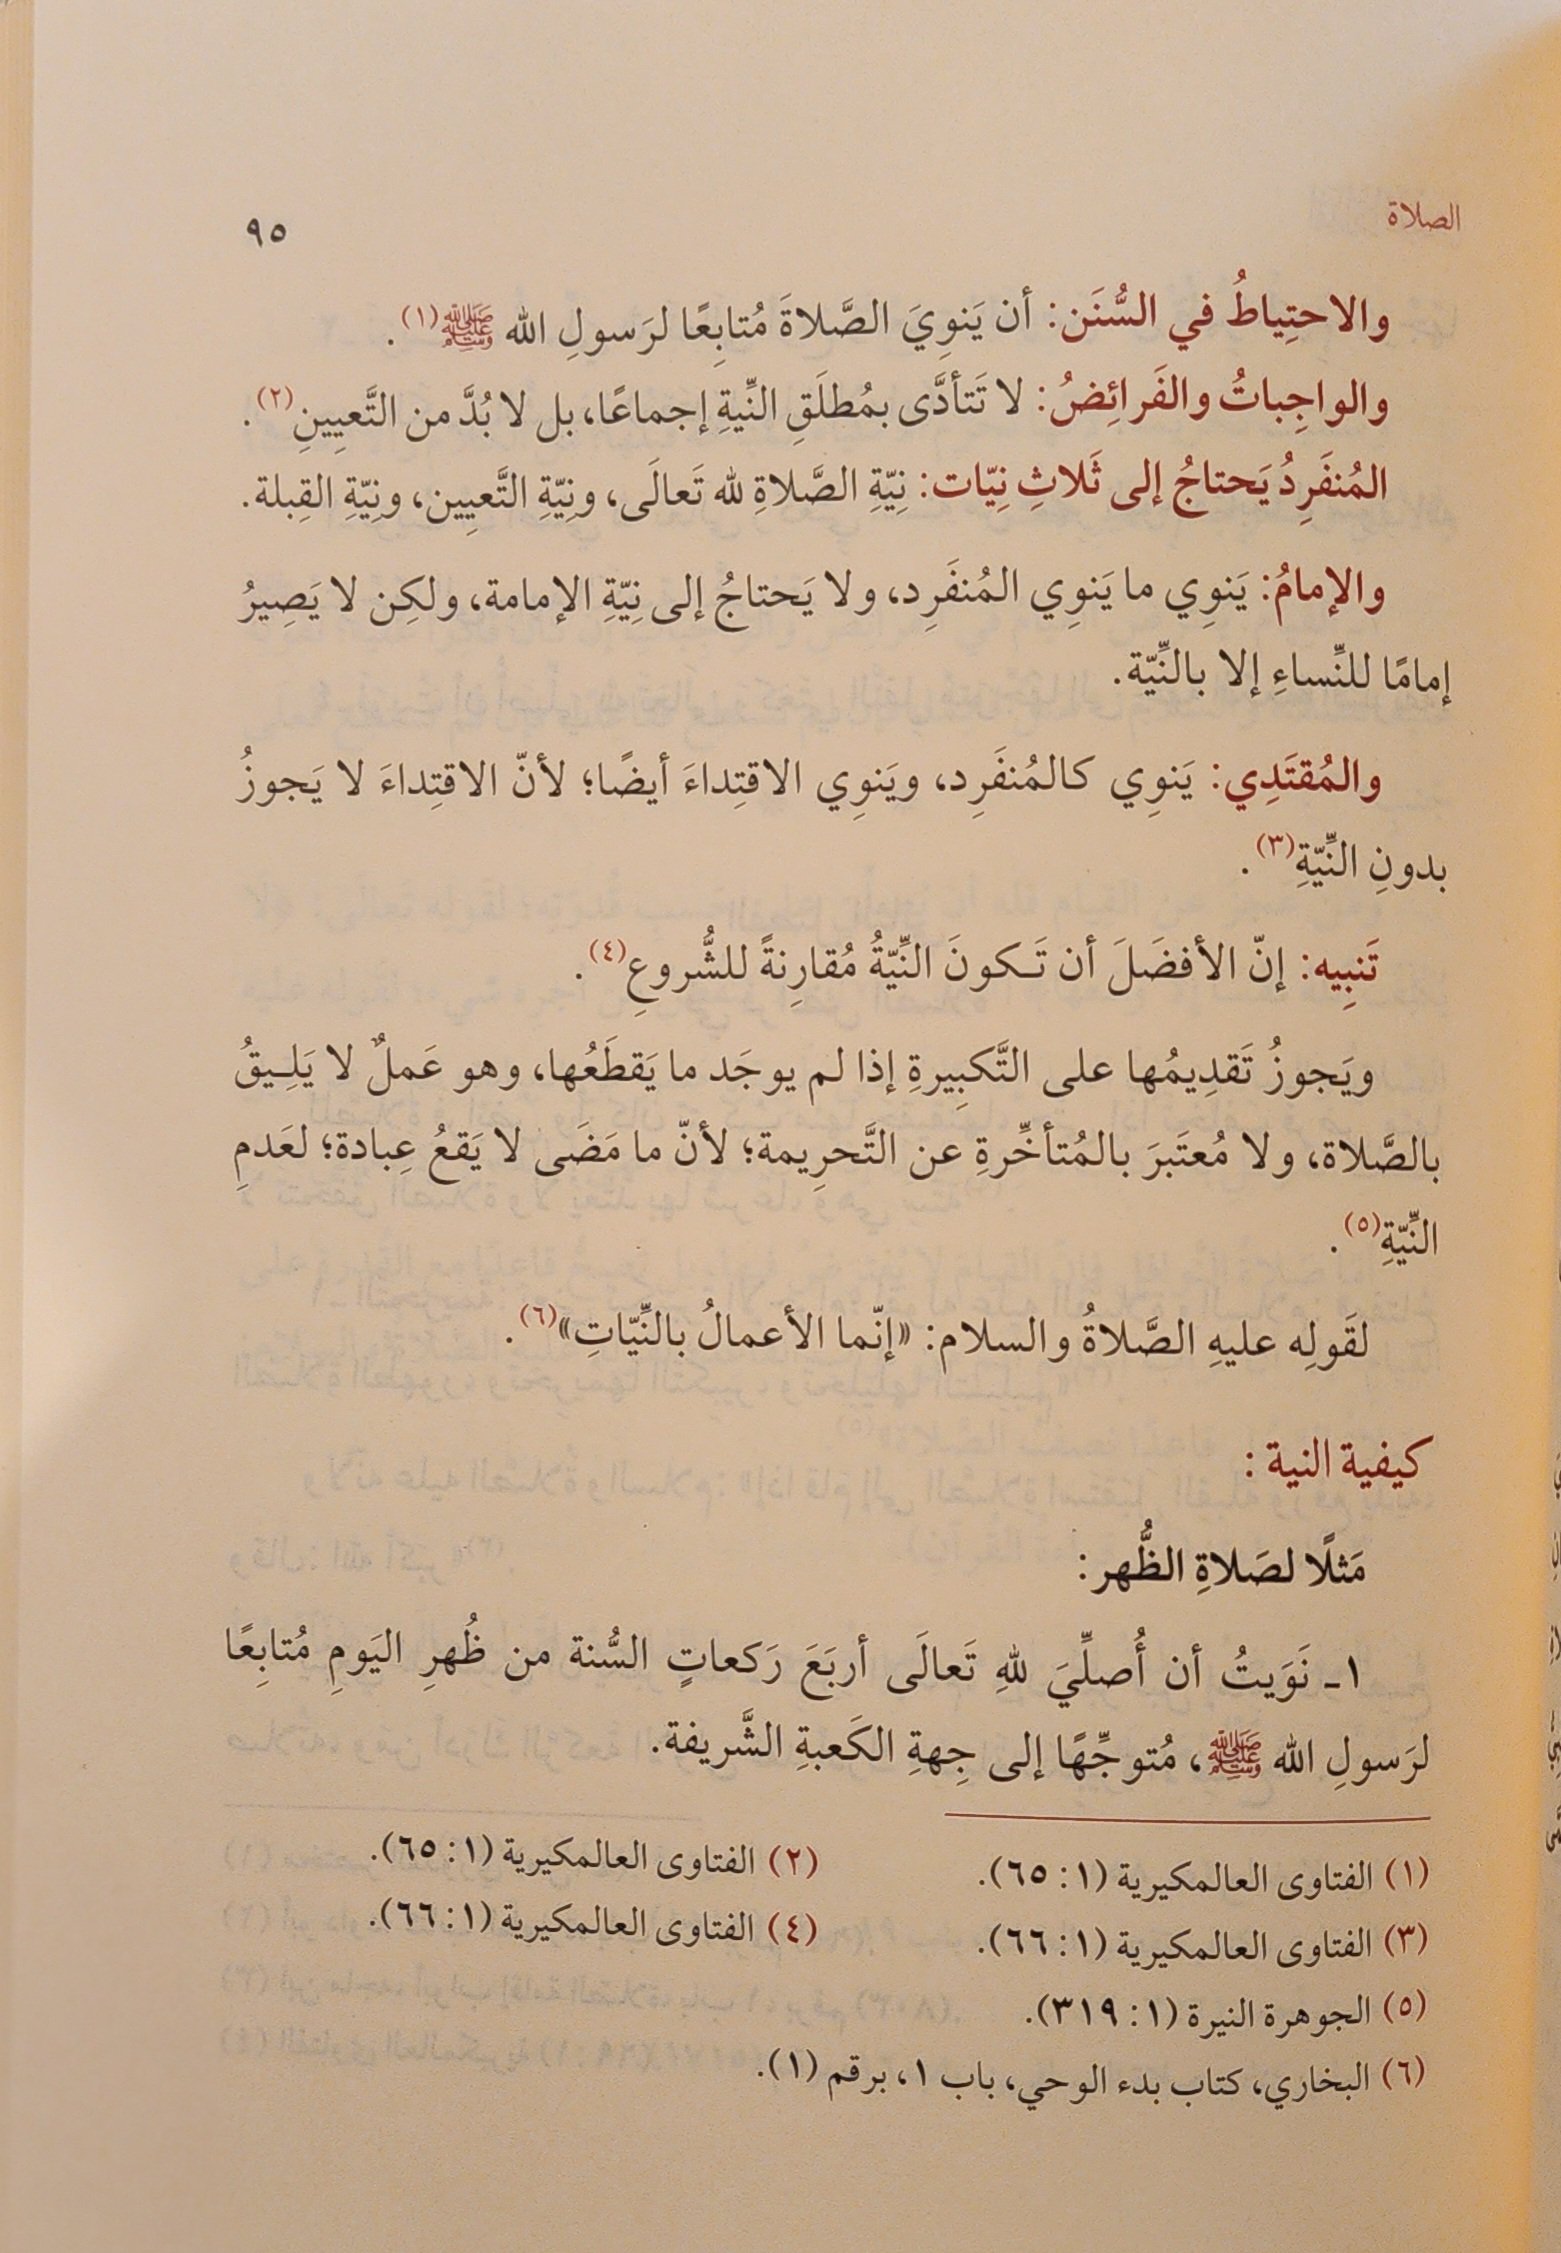 الصلاة
٩٥
والاحتِياطُ في السُّنَن: أن يَنوِيَ الصَّلاةَ مُتابِعًا لرَسولِ الله ﷺ(١).
والواجِباتُ والفَرائِضُ: لا تَتأدَّى بمُطلَقِ النِّيةِ إجماعًا، بل لا بُدَّ من التَّعيِينِ(٢).
المُنفَرِدُ يَحتاجُ إلى ثَلاثِ نِيّات: نِيّةِ الصَّلاةِ لله تَعالَى، ونِيّةِ التَّعيِين، ونِيّةِ القِبلة.
والإمامُ: يَنوِي ما يَنوِي المُنفَرِد، ولا يَحتاجُ إلى نِيّةِ الإمامة، ولكِن لا يَصِيرُ
إمامًا للنِّساءِ إلا بالنِّيّة.
والمُقتَدِي: يَنوِي كالمُنفَرِد، ويَنوِي الاقتِداءَ أيضًا؛ لأنّ الاقتِداءَ لا يَجوزُ
بدونِ النِّيّةِ(٣).
تَنبِيه: إنّ الأفضَلَ أن تَكونَ النِّيّةُ مُقارِنةً للشُّروعِ(٤).
ويَجوزُ تَقدِيمُها على التَّكبِيرةِ إذا لم يوجَد ما يَقطَعُها، وهو عَملٌ لا يَلِيقُ
بالصَّلاة، ولا مُعتَبرَ بالمُتأخِّرةِ عن التَّحرِيمة؛ لأنّ ما مَضَى لا يَقعُ عِبادة؛ لعَدمِ
النِّيّةِ(٥).
لقَولِه عليهِ الصَّلاةُ والسلام: «إنّما الأعمالُ بالنِّيّاتِ»(٦).
كيفية النية :
مَثلًا لصَلاةِ الظُّهر:
١ـ نَوَيتُ أن أُصلِّيَ للهِ تَعالَى أربَعَ رَكعاتٍ السُّنة من ظُهرِ اليَومِ مُتابِعًا
لرَسولِ الله ﷺ، مُتوجِّهًا إلى جِهةِ الكَعبةِ الشَّريفة.
(١) الفتاوى العالمكيرية (١: ٦٥).
(٢) الفتاوى العالمكيرية (١: ٦٥).
(٣) الفتاوى العالمكيرية (١: ٦٦).
(٤) الفتاوى العالمكيرية (١: ٦٦).
(٥) الجوهرة النيرة (١: ٣١٩).
(٦) البخاري، كتاب بدء الوحي، باب ١، برقم (١).